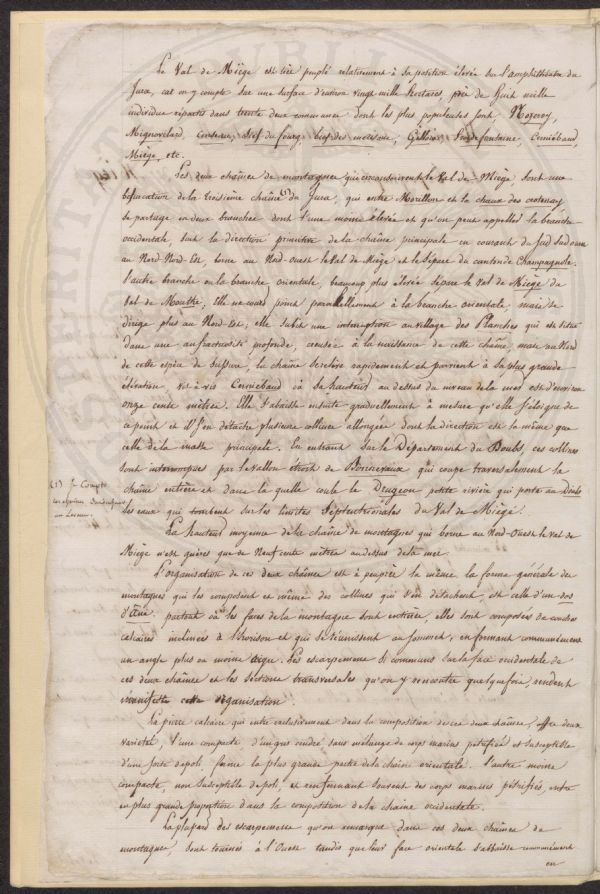 Le Val de Miège est très peuplé relativement à sa position élevée sur l'amphithéatre du
Jura, car on y compte sur une surface d'environ vingt mille hectares, près de huit mille
individus répartis dans trente deux communes dont les plus populeuses sont, Nozeroy,
Mignovilard, Censeau, Sief du fourg, bief des maisons, Gillois, Froidefontaine, Cerniébaud,
Miège, etc.
Les deux chaînes de montagnes qui circonscrivent le Val de Miège, sont une
bifurcation de la troisième chaîne (1) du Jura, qui entre Morillon et la chaux des crotenay
se partage en deux branches dont l'une moins élevée et qu'on peut appeller la branche
occidentale, suit la direction primitive de la chaîne principale en courant du Sud Sud-ouest
au Nord-Nord-Est, borne au Nord-ouest le Val de Miège et le sépare du canton de Champagnole.
l'autre branche ou la branche orientale, beaucoup plus élevée sépare le Val de Miège du
Val de Mouthe, Elle ne court point parallellement à la branche orientale, mais se
dirige plus au Nord-Est; elle subit une interruption au village des Planches qui est situé
dans une anfractuosité profonde, creusée à la naissance de cette chaîne, mais au Nord
de cette espèce de fissure, la chaîne se relève rapidement et parvient à sa plus grande
élévation, vis-à-vis Cerniébaud où sa hauteur au dessus du niveau de la mer est d'environ
onze cents mètres. Elle s'abaisse ensuite graduellement à mesure qu'elle s'éloigne de
ce point et il s'en détache plusieurs collines allongées dont la direction est la même que
celle de la masse principale. En entrant sur le Département du Doubs, ces collines
sont interrompues par le vallon étroit de Bonnevaux qui coupe transversalement la
(1) Je Compte
chaîne entière et dans laquelle coule le Drugeon petite rivière qui porte au Doubs
les eaux qui tombent sur les limites Septentrionales du Val de Miège.
La hauteur moyenne de la chaîne de montagnes qui borne au Nord-Ouest le Val de
Miège n'est guères que de Neuf cents mètres au dessus de la mer.
L'organisation de ces deux chaînes est à peu près la même. la forme générale des
montagnes qui les composent et même des collines qui s'en détachent, est celle d'un dos
d'Ane. partout où les faces de la montagne sont entières, elles sont composées de couches
calcaires inclinées à l'horison et qui se réunissent au sommet, en formant communément
un angle plus ou moins aigu. Les escarpemens si communs sur la face occidentale de
ces deux chaînes et les sections transversales qu'on y rencontre quelquefois, rendent
manifeste cette organisation.
La pierre calcaire qui entre exclusivement dans la composition de ces deux chaînes, offre deux
variétés; l'une compacte, d'un gris cendré, sans mélange de corps marins pétrifiés et susceptible
d'une sorte de poli, forme la plus grande partie de la chaîne orientale. l'autre moins
compacte, non susceptible de poli, et renfermant souvent des corps marins pétrifiés, entre
en plus grande proportion dans la composition de la chaîne occidentale.
La plupart des escarpemens qu'on remarque dans ces deux chaînes de
montagnes, sont tournés à l'Ouest tandis que leur face orientale s'abaisse communément
en